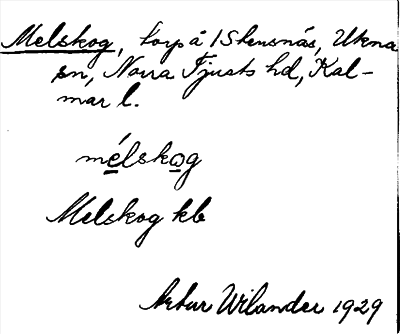 Melskog, torp å Stensnäs, Ukna
sn, Norra Tjusts hd, Kal-
mar l.
mélskog
Melskog kb
Artur Wilander 1929